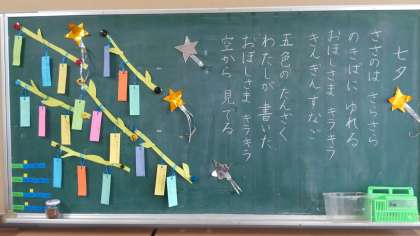 七夕
ささのは さらさら
のきばに ゆれる
おほしさま キラキラ
きんぎんすなご
五色の たんざく
わたしが 書いた
おほしさま キラキラ
空から 見てる